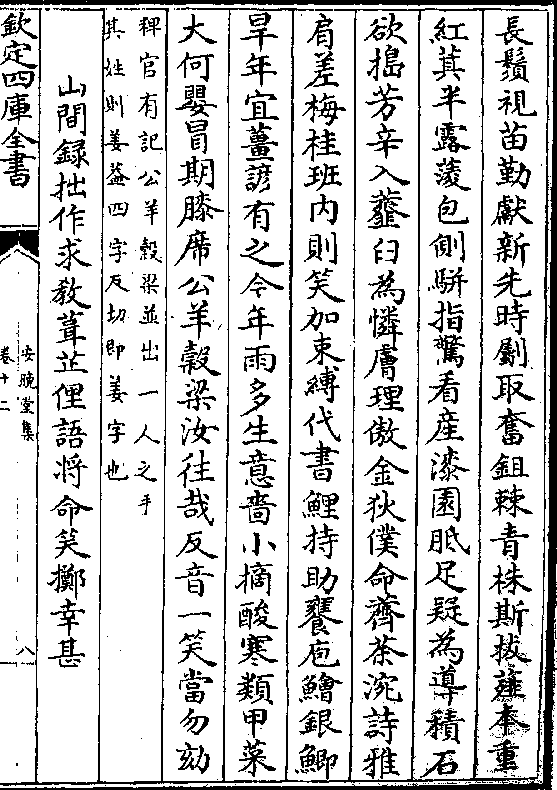 長鬚視苗勤獻新先時劚取奮鉏棘青株斯拔薤本重
紅萁半露蔆包側駢指驚看産漆園胝足疑為導積石
欲搗芳辛入虀臼為憐膚理傲金狄僕命薺茶涴詩雅
肩差梅桂班内則笑加束縛代書鯉持助饔庖鱠銀鯽
旱年宜薑諺有之今年雨多生意嗇小摘酸寒類甲菜
大何嬰冒期膝席公羊穀梁汝往哉反音一笑當勿劾
稗官有記公羊穀梁並出一人之手
其姓則姜葢四字反切即姜字也
山間録拙作求教葺芷俚語将命笑擲幸甚
欽定四庫全書
安晚堂集
卷十二
八